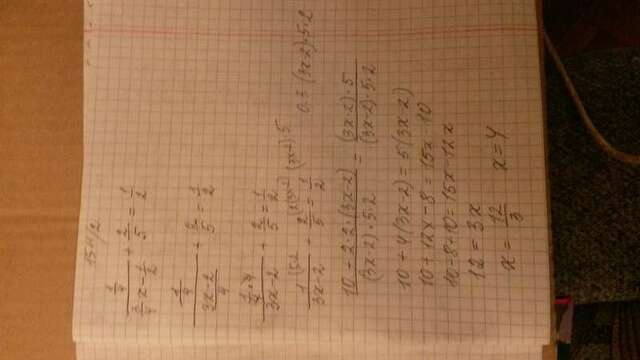 1541/2
\frac{\frac{1}{4}}{\frac{3}{4}x-\frac{1}{2}}+\frac{2}{5}=\frac{1}{2}
\frac{\frac{1}{4}}{\frac{3x-2}{4}}+\frac{2}{5}=\frac{1}{2}
\frac{\frac{1}{4}·4}{3x-2}+\frac{2}{5}=\frac{1}{2}
\frac{1}{3x-2}+\frac{2}{5}=\frac{1}{2} (3x-2)·5·2
\frac{10-2·2·(3x-2)}{(3x-2)·5·2}=\frac{(3x-2)·5}{(3x-2)·5·2}
10+4(3x-2)=5(3x-2)
10+12x-8=15x-10
10-8+10=15x-12x
12=3x
x=\frac{12}{3} x=4